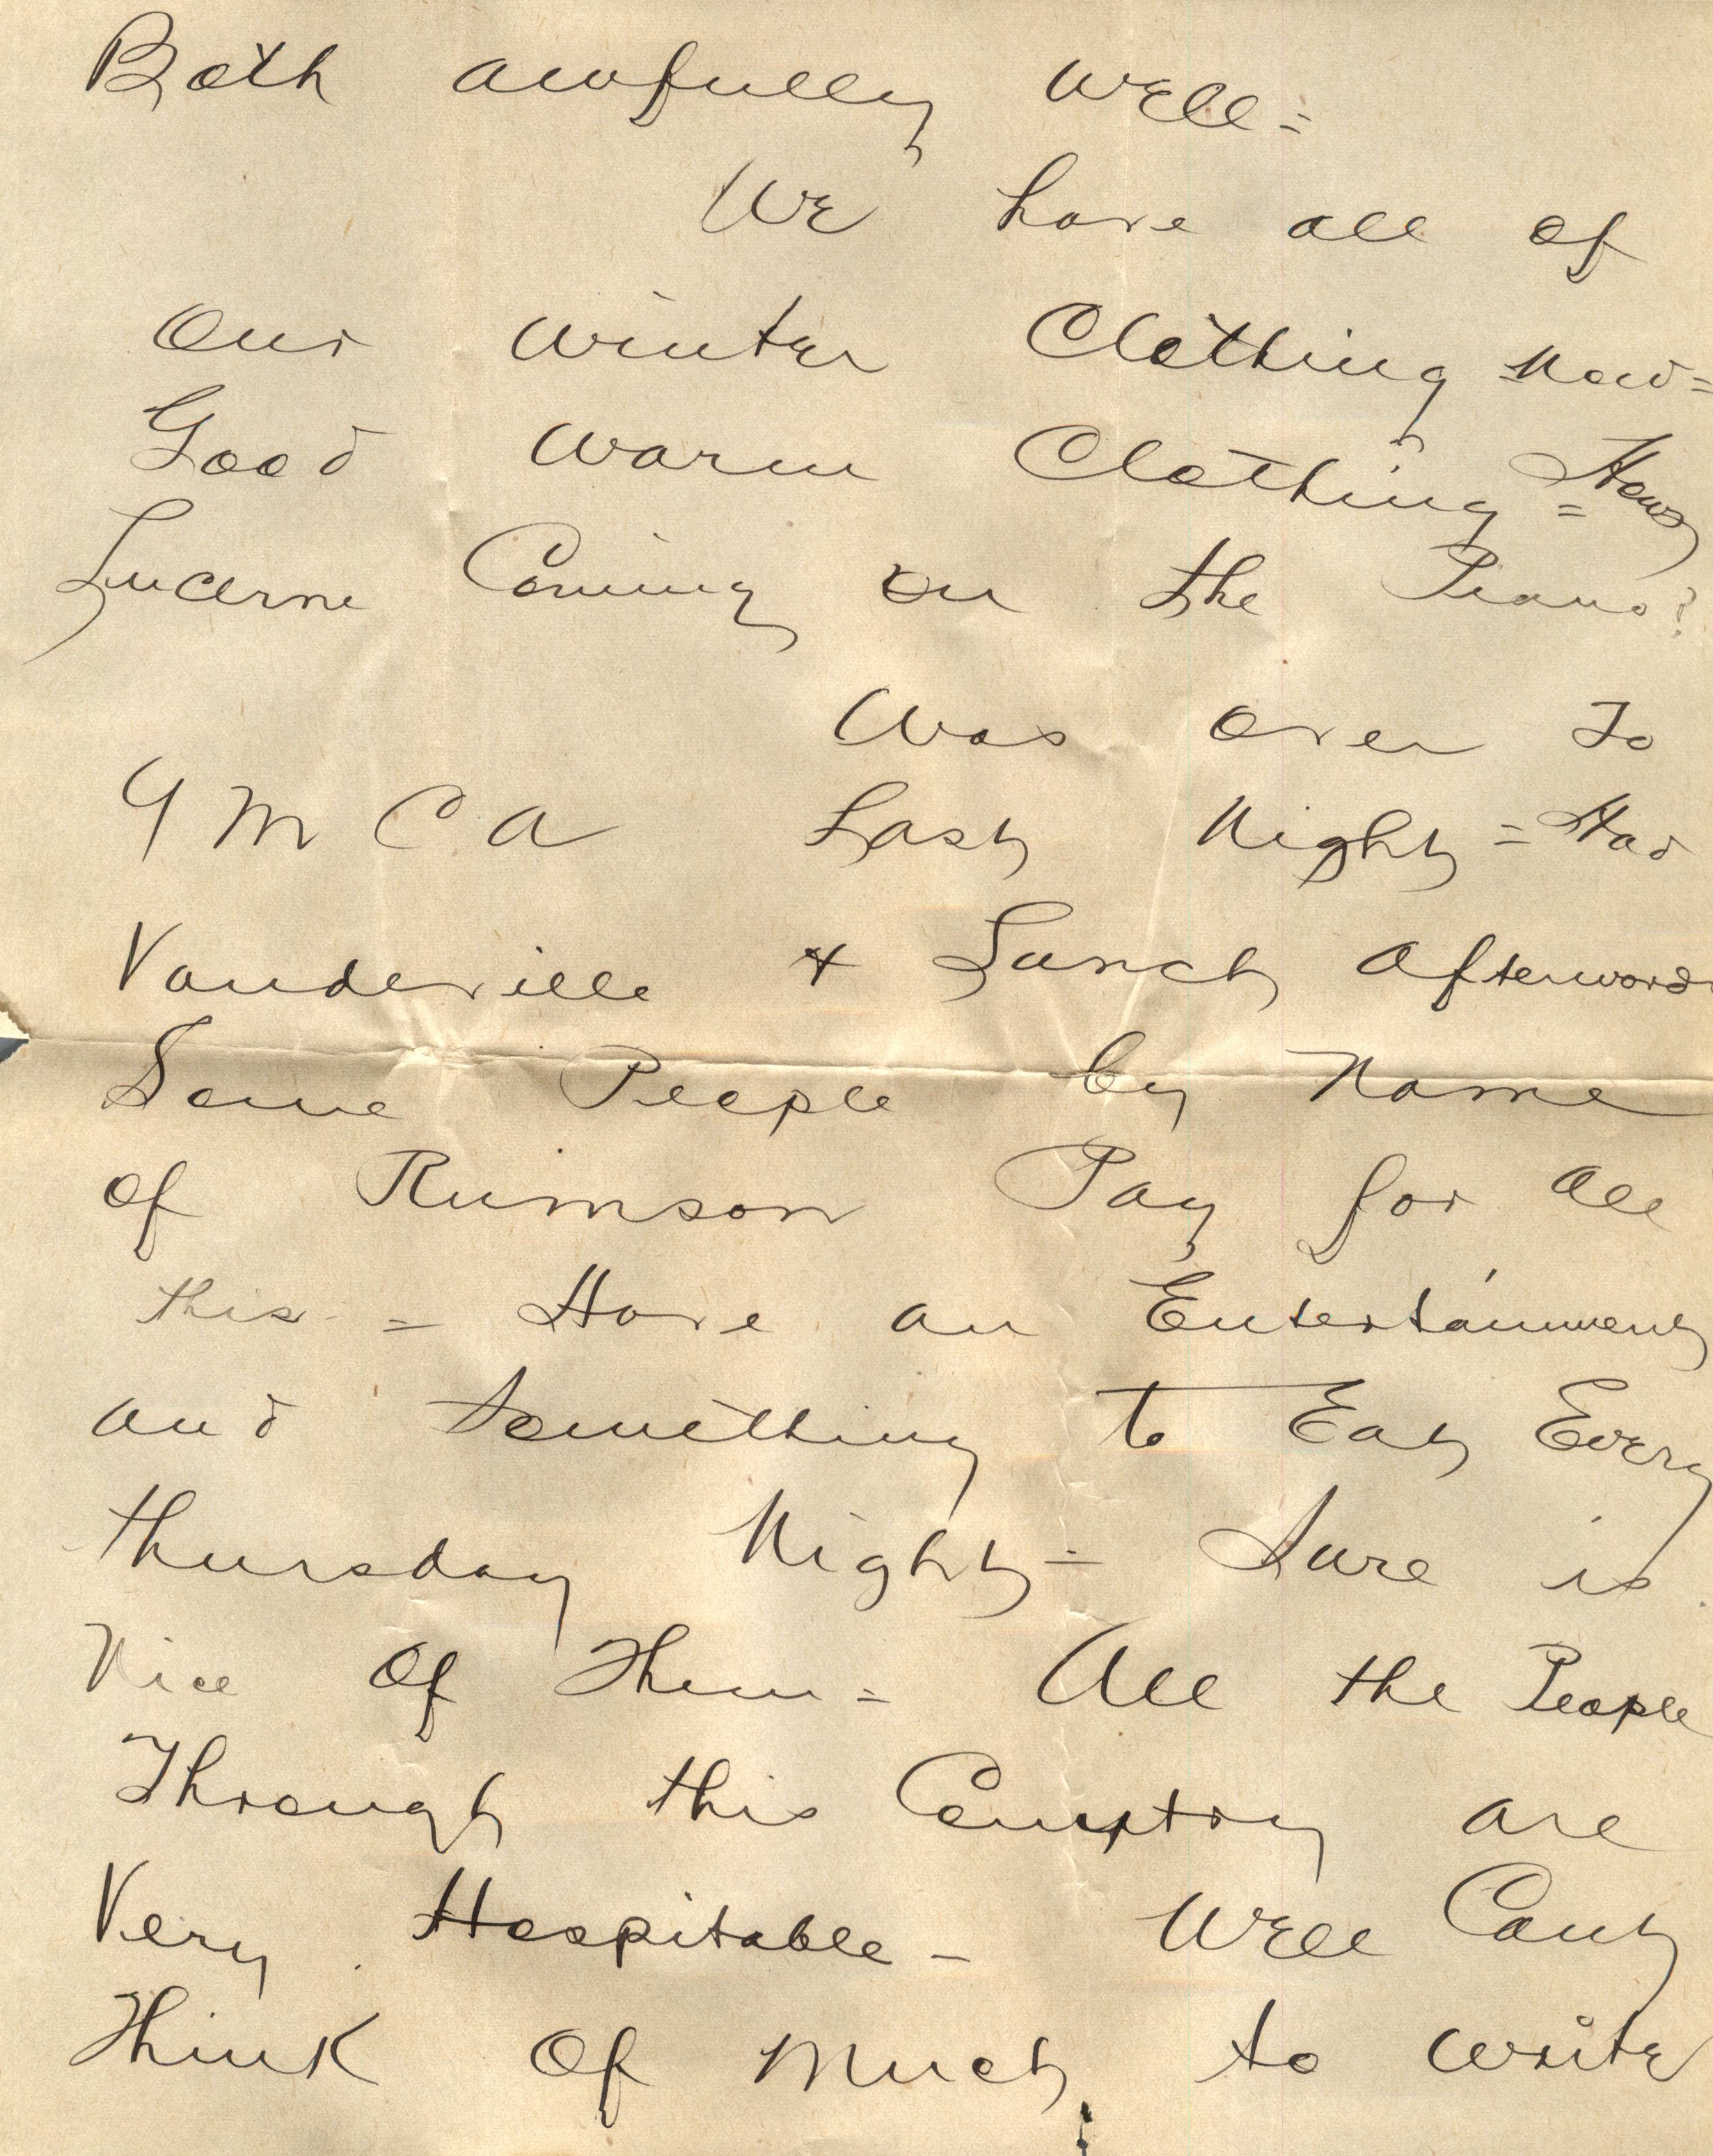 Both awfully well =
We have all of
Our winter Clothing = Now =
Good warm Clothing = Hows
Lucerne Coming on the Piano?
Was over To
Y M C A Last Night = Had
Vaudeville & Lunch Afterwards
Some People by Name
of Rumson Pay for All
this = Have an Entertainment
and Something to Eat Every
Thursday Night = Sure is
Nice Of Them = All the People
Through this Country are
Very Hospitable - Well Cant
Think Of Much to write